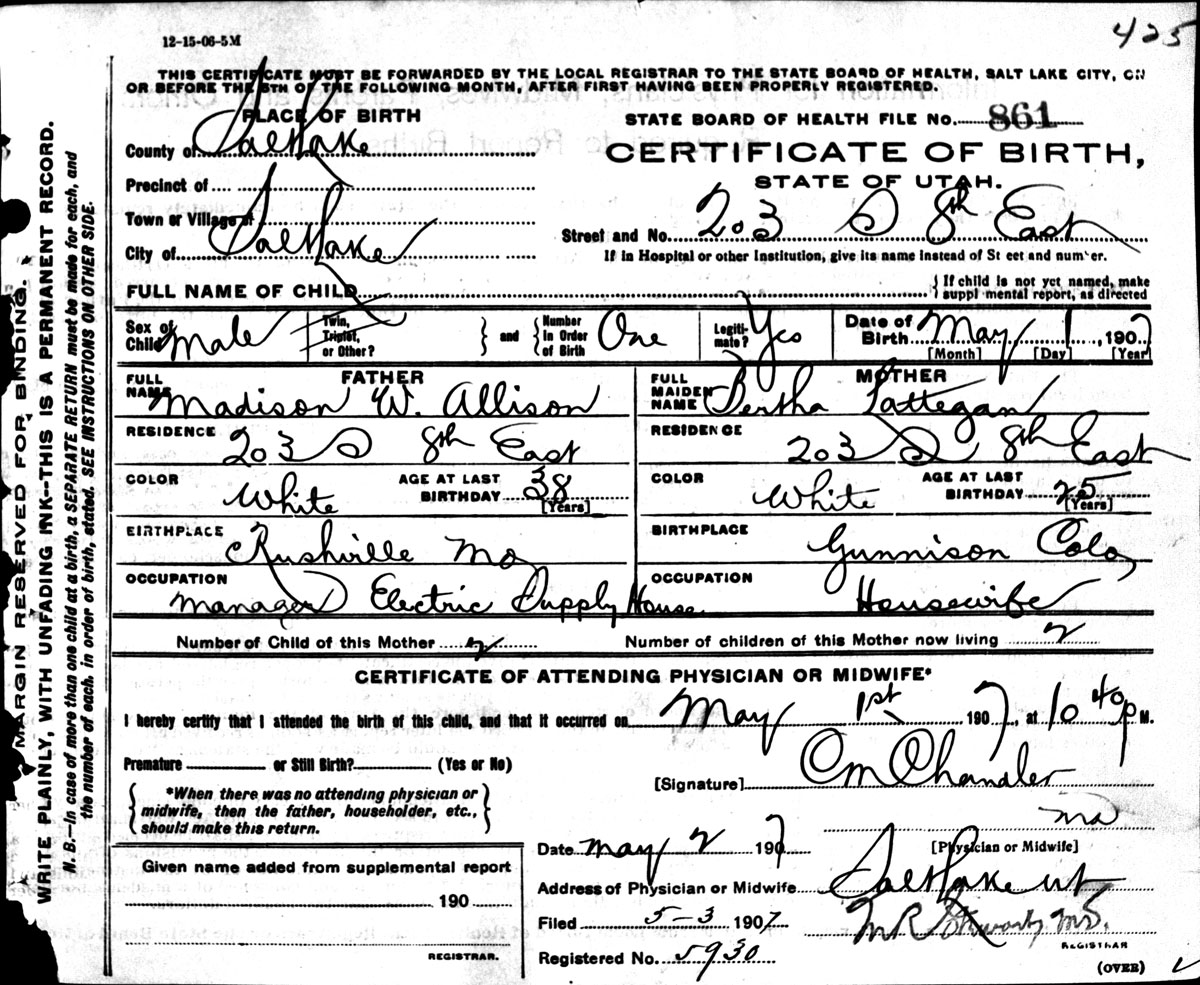 425
12-15-06-5M
THIS CERTIFICATE MUST BE FORWARDED BY THE LOCAL REGISTRAR TO THE STATE BOARD OF HEALTH, SALT LAKE CITY, ON
OR BEFORE THE 5TH OF THE FOLLOWING MONTH, AFTER FIRST HAVING BEEN PROPERLY REGISTERED.
PLACE OF BIRTH
County of Salt Lake
Precinct of
Town or Village of
City of Salt Lake
STATE BOARD OF HEALTH FILE NO. 861
CERTIFICATE OF BIRTH,
STATE OF UTAH.
Street and No. 203 S 8th East
If in Hospital or other Institution, give its name instead of St eet and number.
FULL NAME OF CHILD
{ If child is not yet named, make
suppl mental report, as directed
Sex of Child Male
Twin, Triplet, or Other?
} and { Number in Order of Birth One
Legitimate? Yes
Date of Birth May 1, 1907
[Month] [Day] [Year]
FATHER
FULL NAME Madison W. Allison
RESIDENCE 203 S 8th East
COLOR White AGE AT LAST BIRTHDAY 38 [Years]
BIRTHPLACE Rushville Mo
OCCUPATION Manager Electric Supply House
MOTHER
FULL MAIDEN NAME Bertha Lattegan
RESIDENCE 203 S 8th East
COLOR White AGE AT LAST BIRTHDAY 25 [Years]
BIRTHPLACE Gunnison Colo
OCCUPATION Housewife
Number of Child of this Mother 2 Number of children of this Mother now living 2
CERTIFICATE OF ATTENDING PHYSICIAN OR MIDWIFE*
I hereby certify that I attended the birth of this child, and that it occurred on May 1st 1907, at 10 40 P M.
Premature or Still Birth? (Yes or No)
[Signature] C M Chandler
{ *When there was no attending physician or
midwife, then the father, householder, etc.,
should make this return. }
MD
[Physician or Midwife]
Date May 2 1907
Address of Physician or Midwife Salt Lake Ut
Filed 5-3 1907
M R Stewart MD.
REGISTRAR
Registered No. 5930
(OVER)
Given name added from supplemental report
190
REGISTRAR.
MARGIN RESERVED FOR BINDING.
WRITE PLAINLY, WITH UNFADING INK--THIS IS A PERMANENT RECORD.
N. B.—In case of more than one child at a birth, a SEPARATE RETURN must be made for each, and
the number of each, in order of birth, stated. SEE INSTRUCTIONS ON OTHER SIDE.